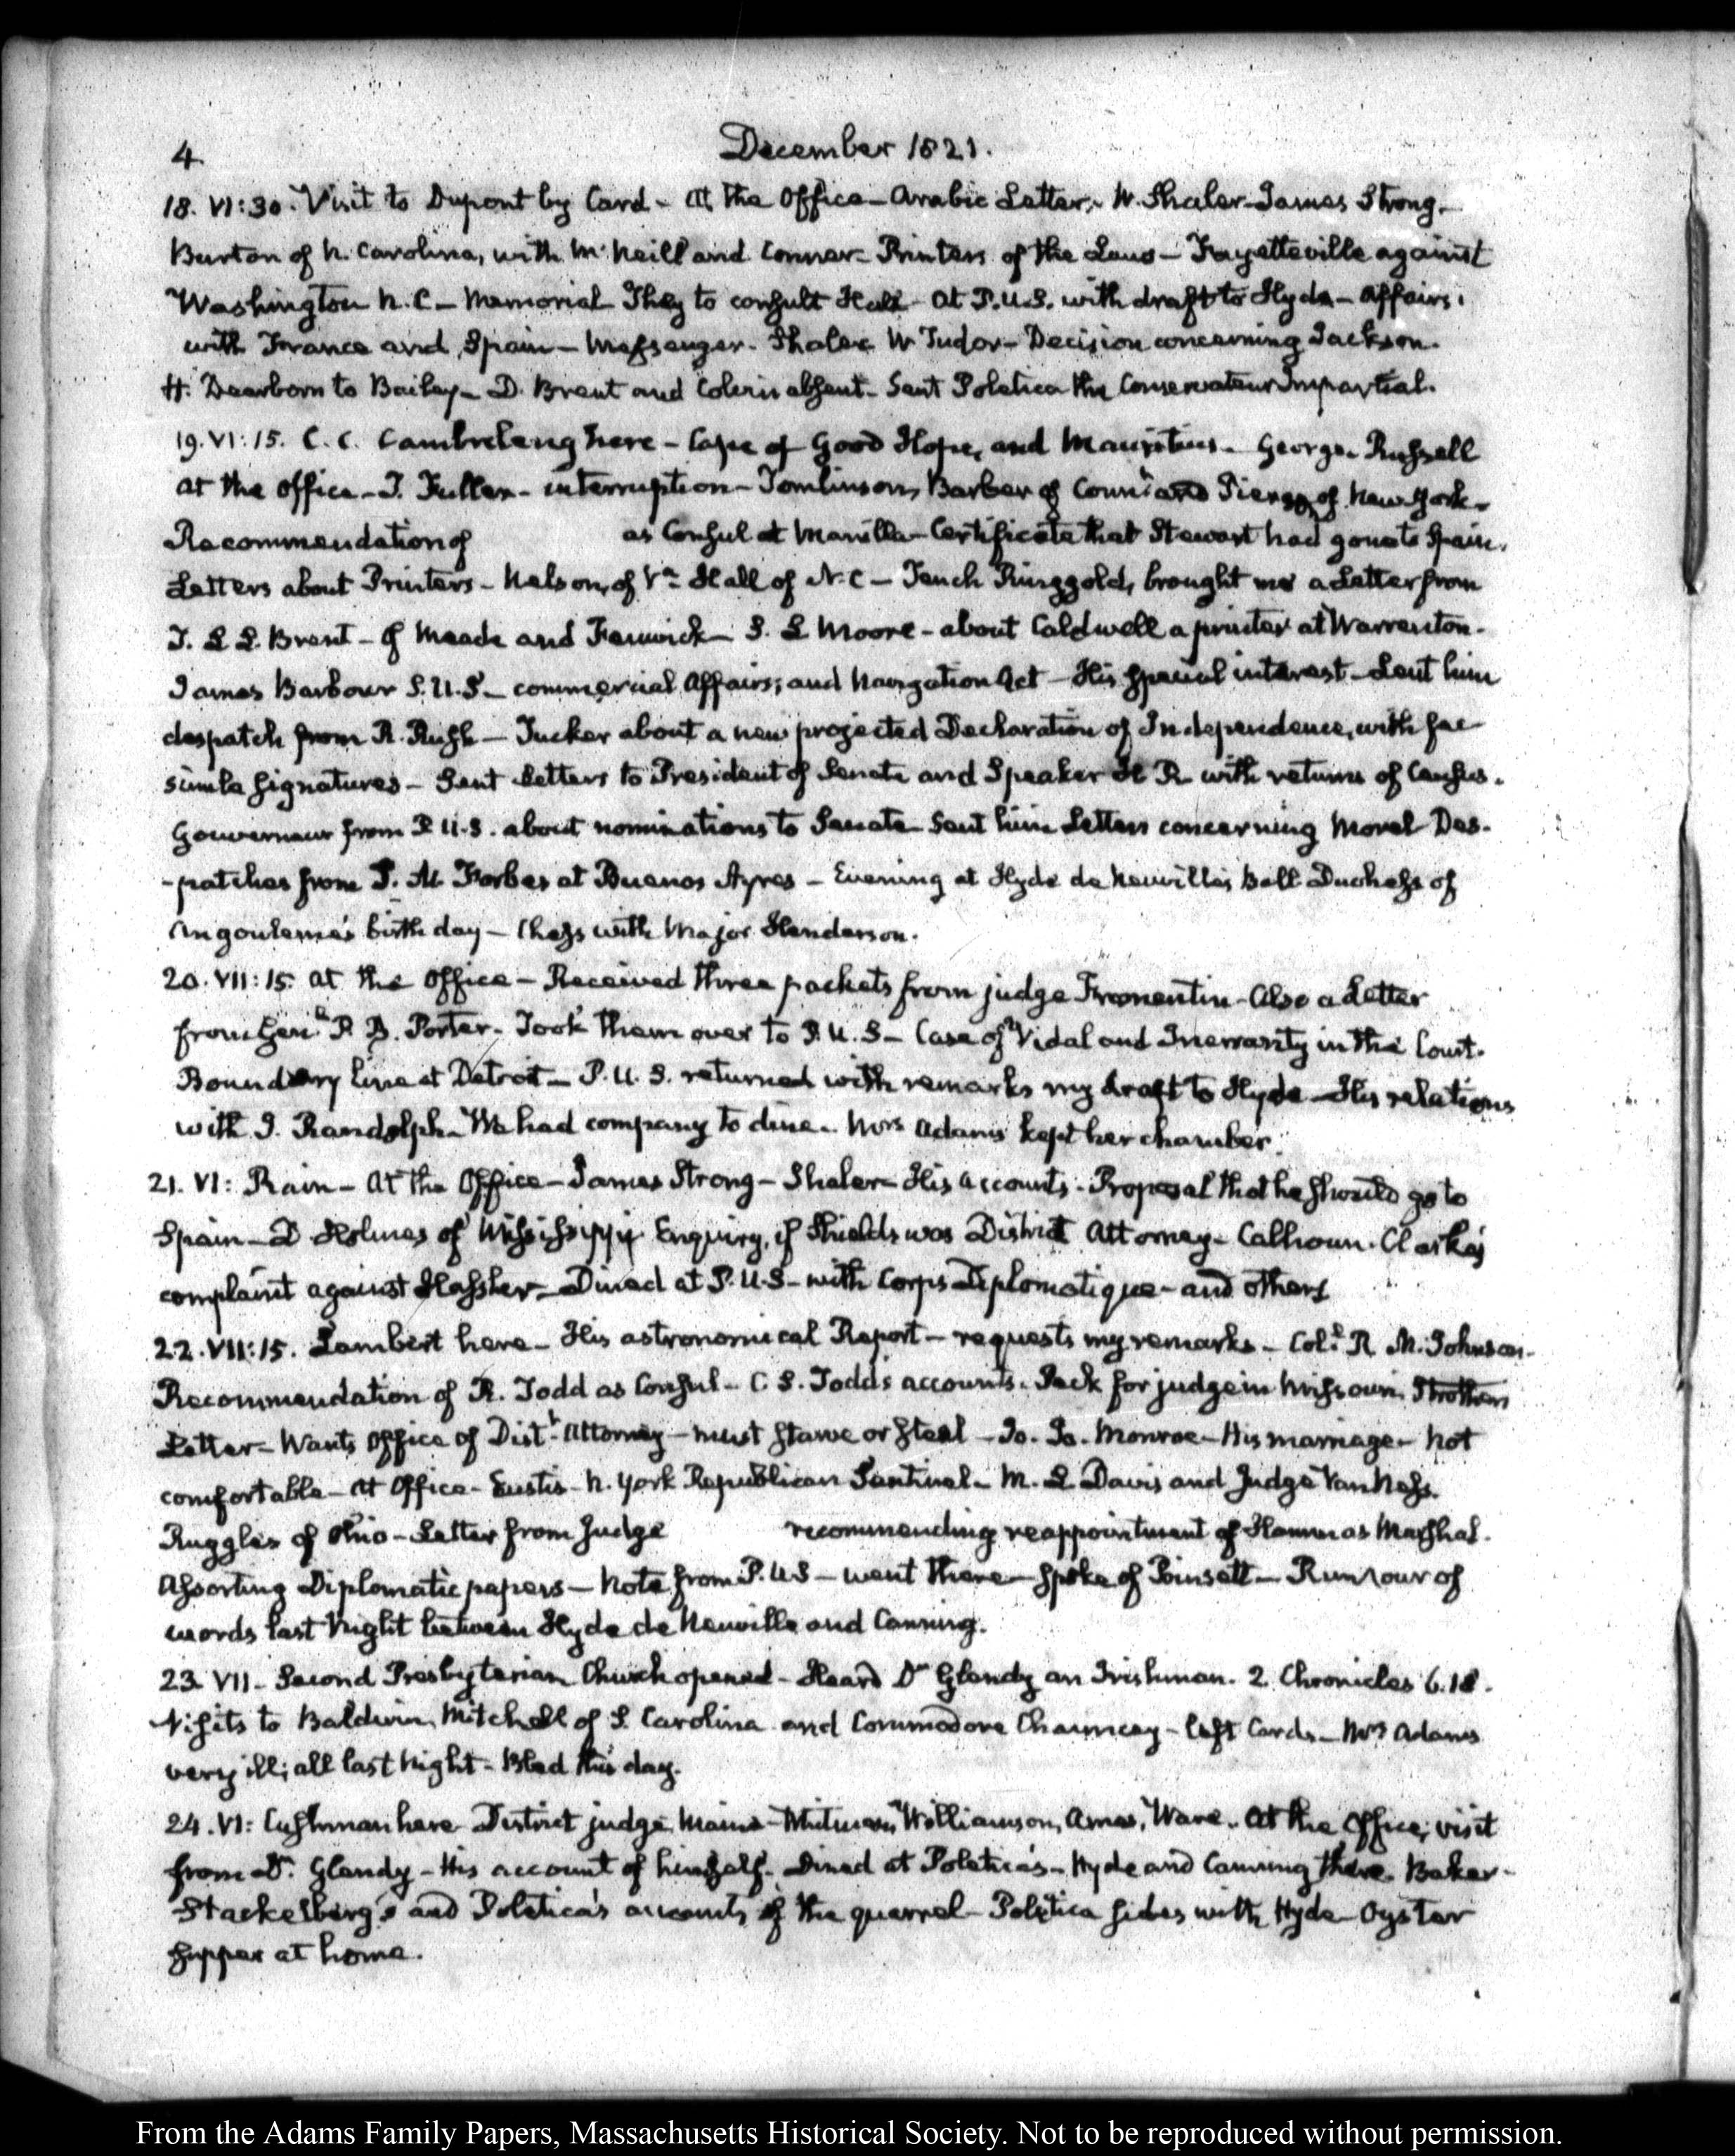 4
December 1821.
18. VI:30. Visit to Dupont by Card - At the Office - Arabic Letter. W. Shaler - James Strong.
Burton of N. Carolina, with McNeill and Conner - Printers of the Laws - Fayetteville against
Washington N.C - Memorial They to consult Hall - at P.U.S. with draft to Hyde - Affairs
with France and Spain - Messenger - Shaler W Tudor - Decision concerning Jackson.
H. Dearborn to Bailey - D. Brent and Colvin absent - Sent Poletica the Conservateur Impartial.
19. VI:15. C. C. Cambreleng here - Cape of Good Hope, and Mauritius - George Russell
at the office - T. Fuller - interruption - Tomlinson, Barber of Conn.t and Pierson of New York -
Recommendation of as Consul at Manilla - Certificate that Stewart had gone to Spain.
Letters about Printers - Nelson, of Va. Hall of N.C - Tench Ringgold, brought me a Letter from
T. L L. Brent - of Meade and Fenwick - S. L Moore - about Caldwell a printer at Warrenton.
James Barbour S.U.S - commercial Affairs; and Navigation Act - His special interest - Sent him
despatch from R. Rush - Tucker about a new projected Declaration of Independence, with fac
simile signatures - Sent Letters to President of Senate and Speaker H R with returns of Census.
Gouverneur from P U.S. about nominations to Senate - Sent him Letters concerning Morel Des-
-patches from J. M. Forbes at Buenos Ayres - Evening at Hyde de Neuville's Ball Duchess of
Angouleme's birth day - Chess with Major Henderson.
20. VII:15. At the Office - Received three packets from judge Fromentin - Also a Letter
from Genl. P B. Porter - Took them over to P.U.S - Case of Vidal and Innerarity in the Court.
Boundary line at Detroit - P.U.S. returned with remarks my draft to Hyde - His relations
with J. Randolph - We had company to dine. Mrs Adams kept her chamber.
21. VI: Rain - At the Office - James Strong - Shaler - His Accounts - Proposal that he should go to
Spain - D Holmes of Mississippi Enquiry, if Shields was District Attorney - Calhoun. Clark's
complaint against Hassler - Dined at P.U.S - with Corps Diplomatique - and others
22. VII:15. Lambert here - His astronomical Report - requests my remarks - Coll. R M. Johnson -
Recommendation of R. Todd as Consul - C. S. Todd's accounts. Peck for judge in Missouri. Strother's
Letter - Wants Office of Distt. Attorney - must starve or steal - Jo. Jo. Monroe - His marriage - Not
comfortable - At Office - Eustis - N. York Republican Sentinel - M. L Davis and Judge Van Ness.
Ruggles of Ohio - Letter from Judge recommending reappointment of Hamm as Marshal.
Assorting Diplomatic papers - Note from P.U.S - went there - spoke of Poinsett - Rumour of
words last Night between Hyde de Neuville and Canning.
23 VII - Second Presbyterian Church opened - Heard Dr Glendy an Irishman. 2. Chronicles 6.18.
Visits to Baldwin, Mitchell of S. Carolina and Commodore Chauncey - left Cards - Mrs Adams
very ill; all last Night - Bled this day.
24. VI: Cushman here District judge, Maine - Whitman, Williamson, Ames, Ware. At the Office; visit
from Dr. Glendy - His account of himself - Dined at Poletica's - Hyde and Canning there. Baker -
Stackelberg's and Poletica's accounts of the quarrel - Poletica sides with Hyde - Oyster
supper at home.
From the Adams Family Papers, Massachusetts Historical Society. Not to be reproduced without permission.